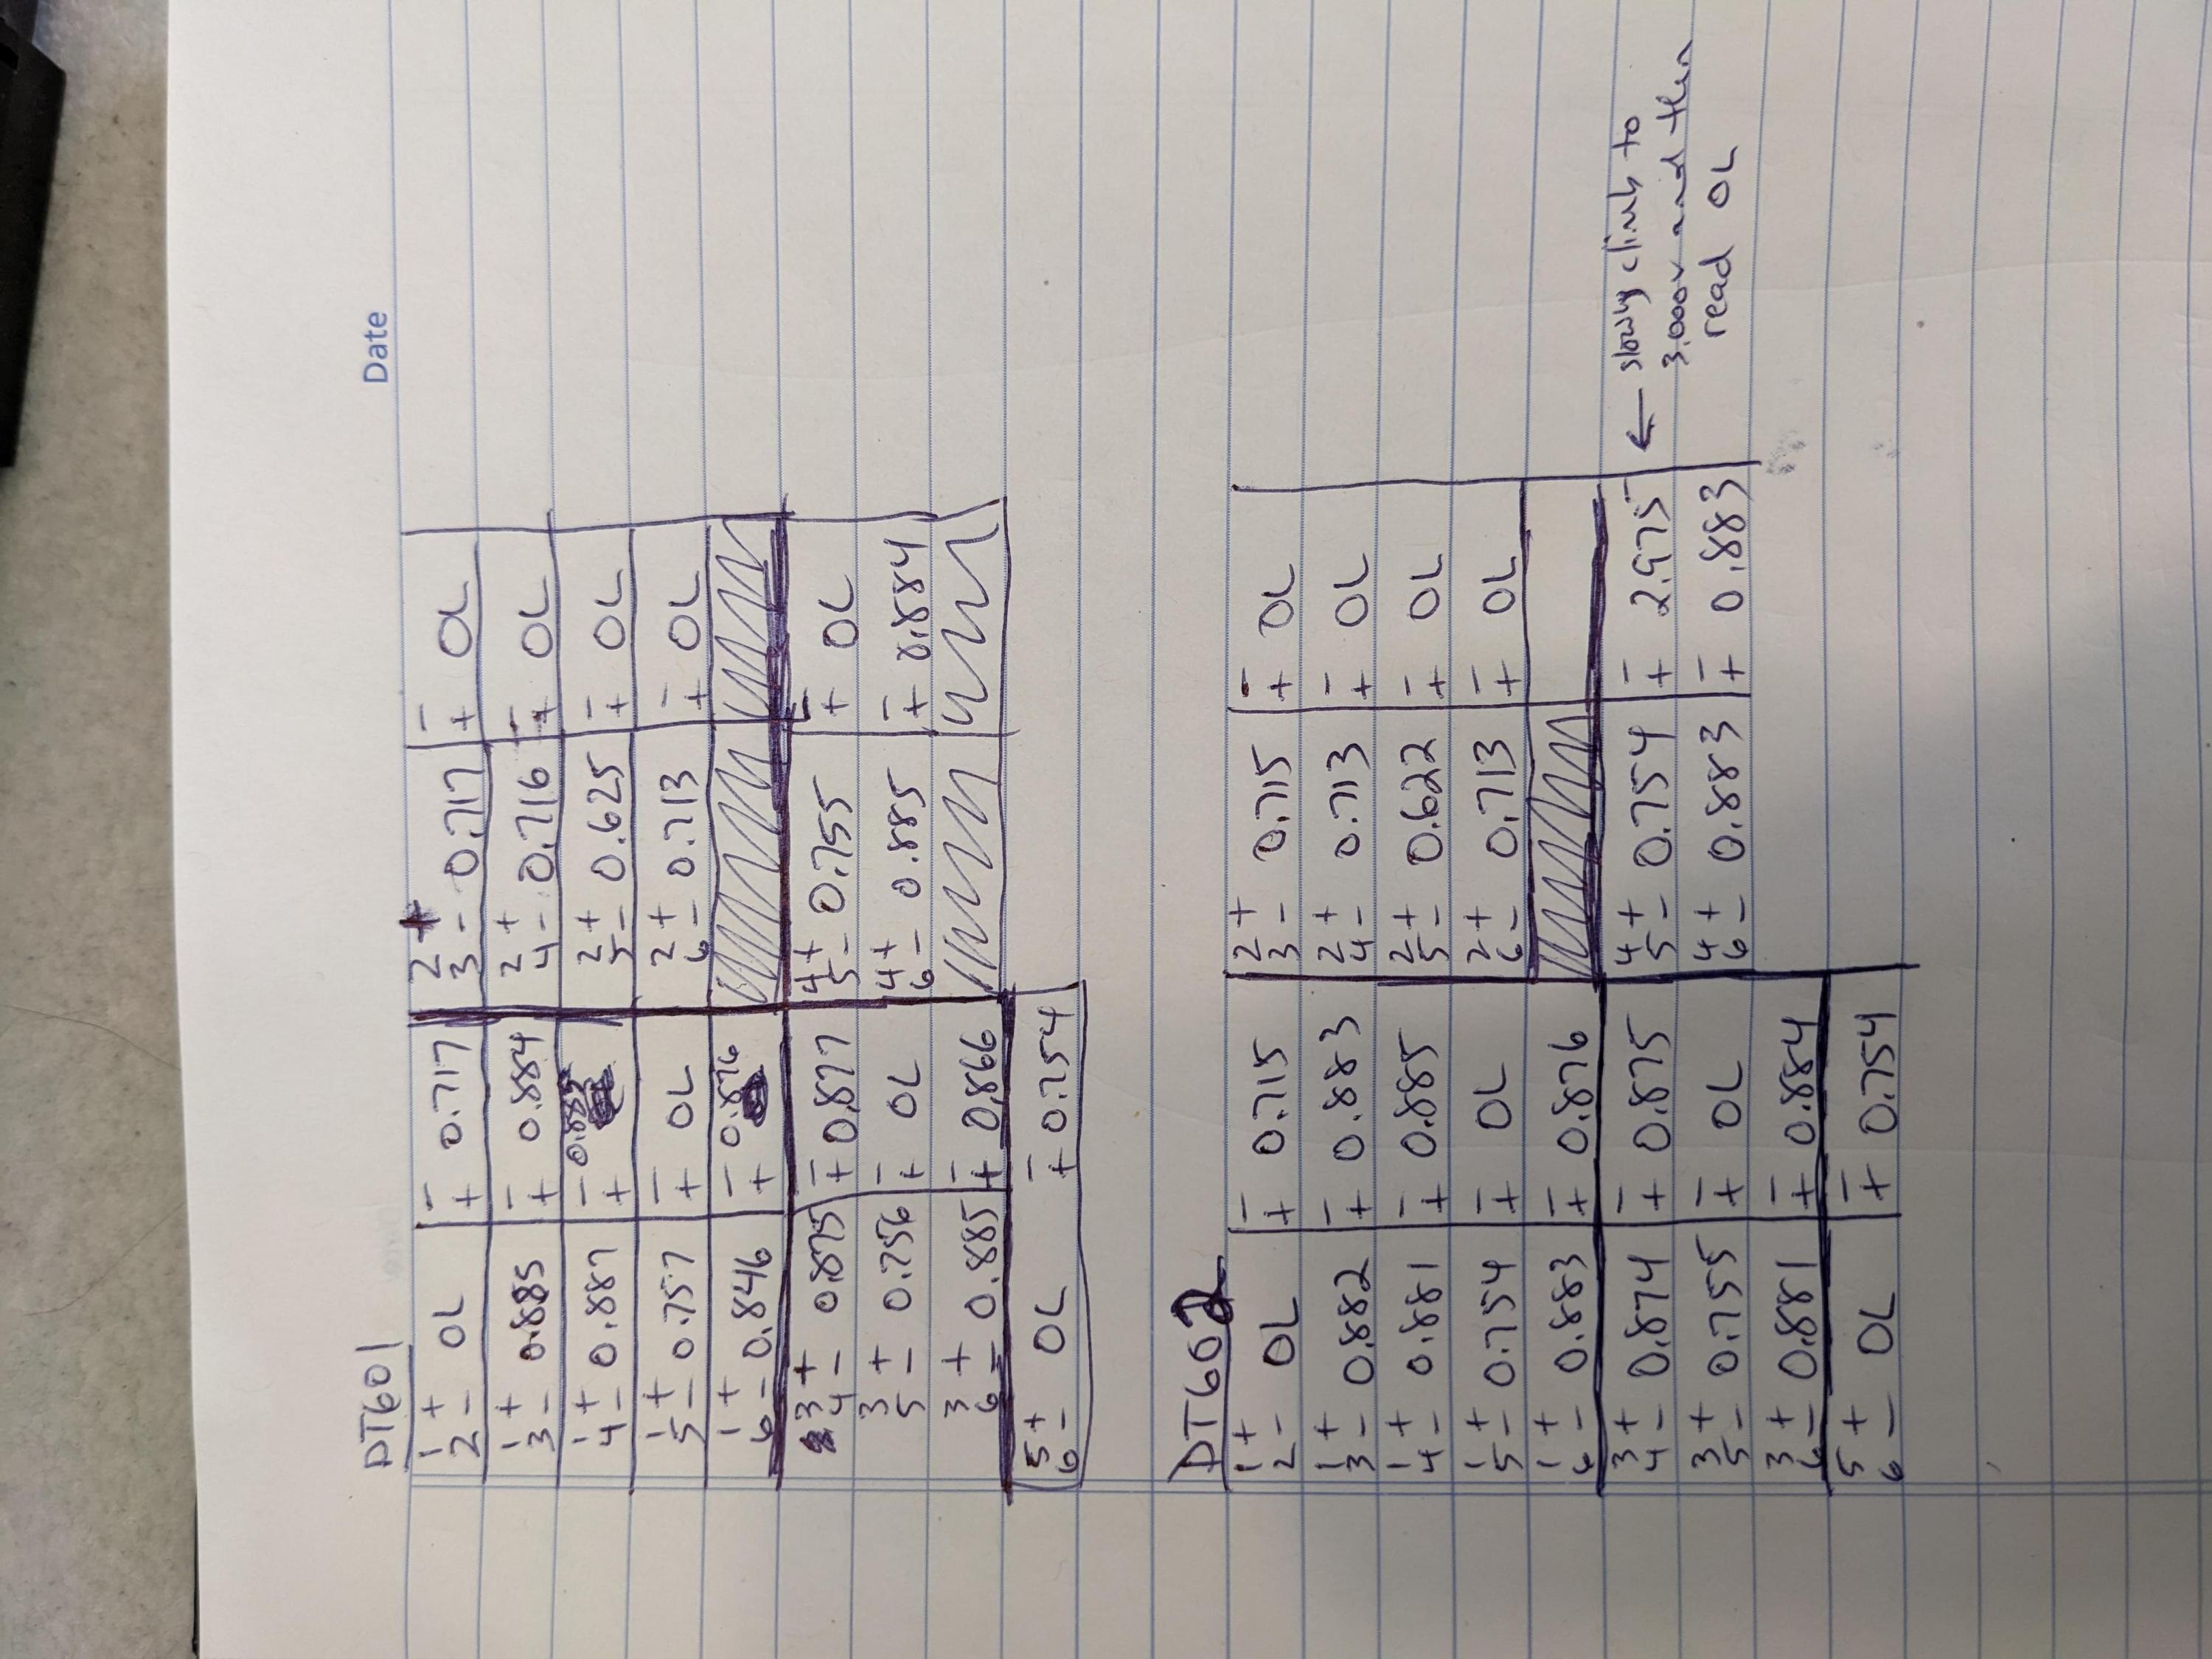 Date
DT601
1+ 2- OL -+ 0.717 2+ 3- 0.717 -+ OL
1+ 3- 0.885 -+ 0.884 2+ 4- 0.716 -+ OL
1+ 4- 0.887 -+ 2+ 5- 0.625 -+ OL
1+ 5- 0.757 -+ OL 2+ 6- 0.713 -+ OL
1+ 6- 0.846 -+ 0.876
3+ 4- 0.875 -+ 0.877 4+ 5- 0.755 -+ OL
3+ 5- 0.756 -+ OL 4+ 6- 0.885 -+ 0.884
3+ 6- 0.885 -+ 0.866
5+ 6- OL -+ 0.754
DT602
1+ 2- OL -+ 0.715 2+ 3- 0.715 -+ OL
1+ 3- 0.882 -+ 0.883 2+ 4- 0.713 -+ OL
1+ 4- 0.881 -+ 0.885 2+ 5- 0.622 -+ OL
1+ 5- 0.754 -+ OL 2+ 6- 0.713 -+ OL
1+ 6- 0.883 -+ 0.876
3+ 4- 0.874 -+ 0.875 4+ 5- 0.754 -+ 2.975 ← slowly climb to
3+ 5- 0.755 -+ OL 4+ 6- 0.883 -+ 0.883 3.000v and then
read OL
3+ 6- 0.881 -+ 0.884
5+ 6- OL -+ 0.754